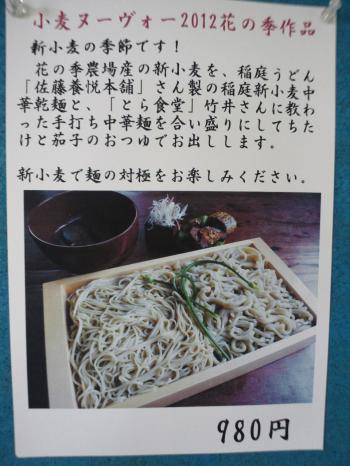 小麦ヌーヴォー2012花の季作品
新小麦の季節です！
花の季農場産の新小麦を、稲庭うどん
「佐藤養悦本舗」さん製の稲庭新小麦中
華乾麺と、「とら食堂」竹井さんに教わ
った手打ち中華麺を合い盛りにしてちた
けと茄子のおつゆでお出しします。
新小麦で麺の対極をお楽しみください。
980円